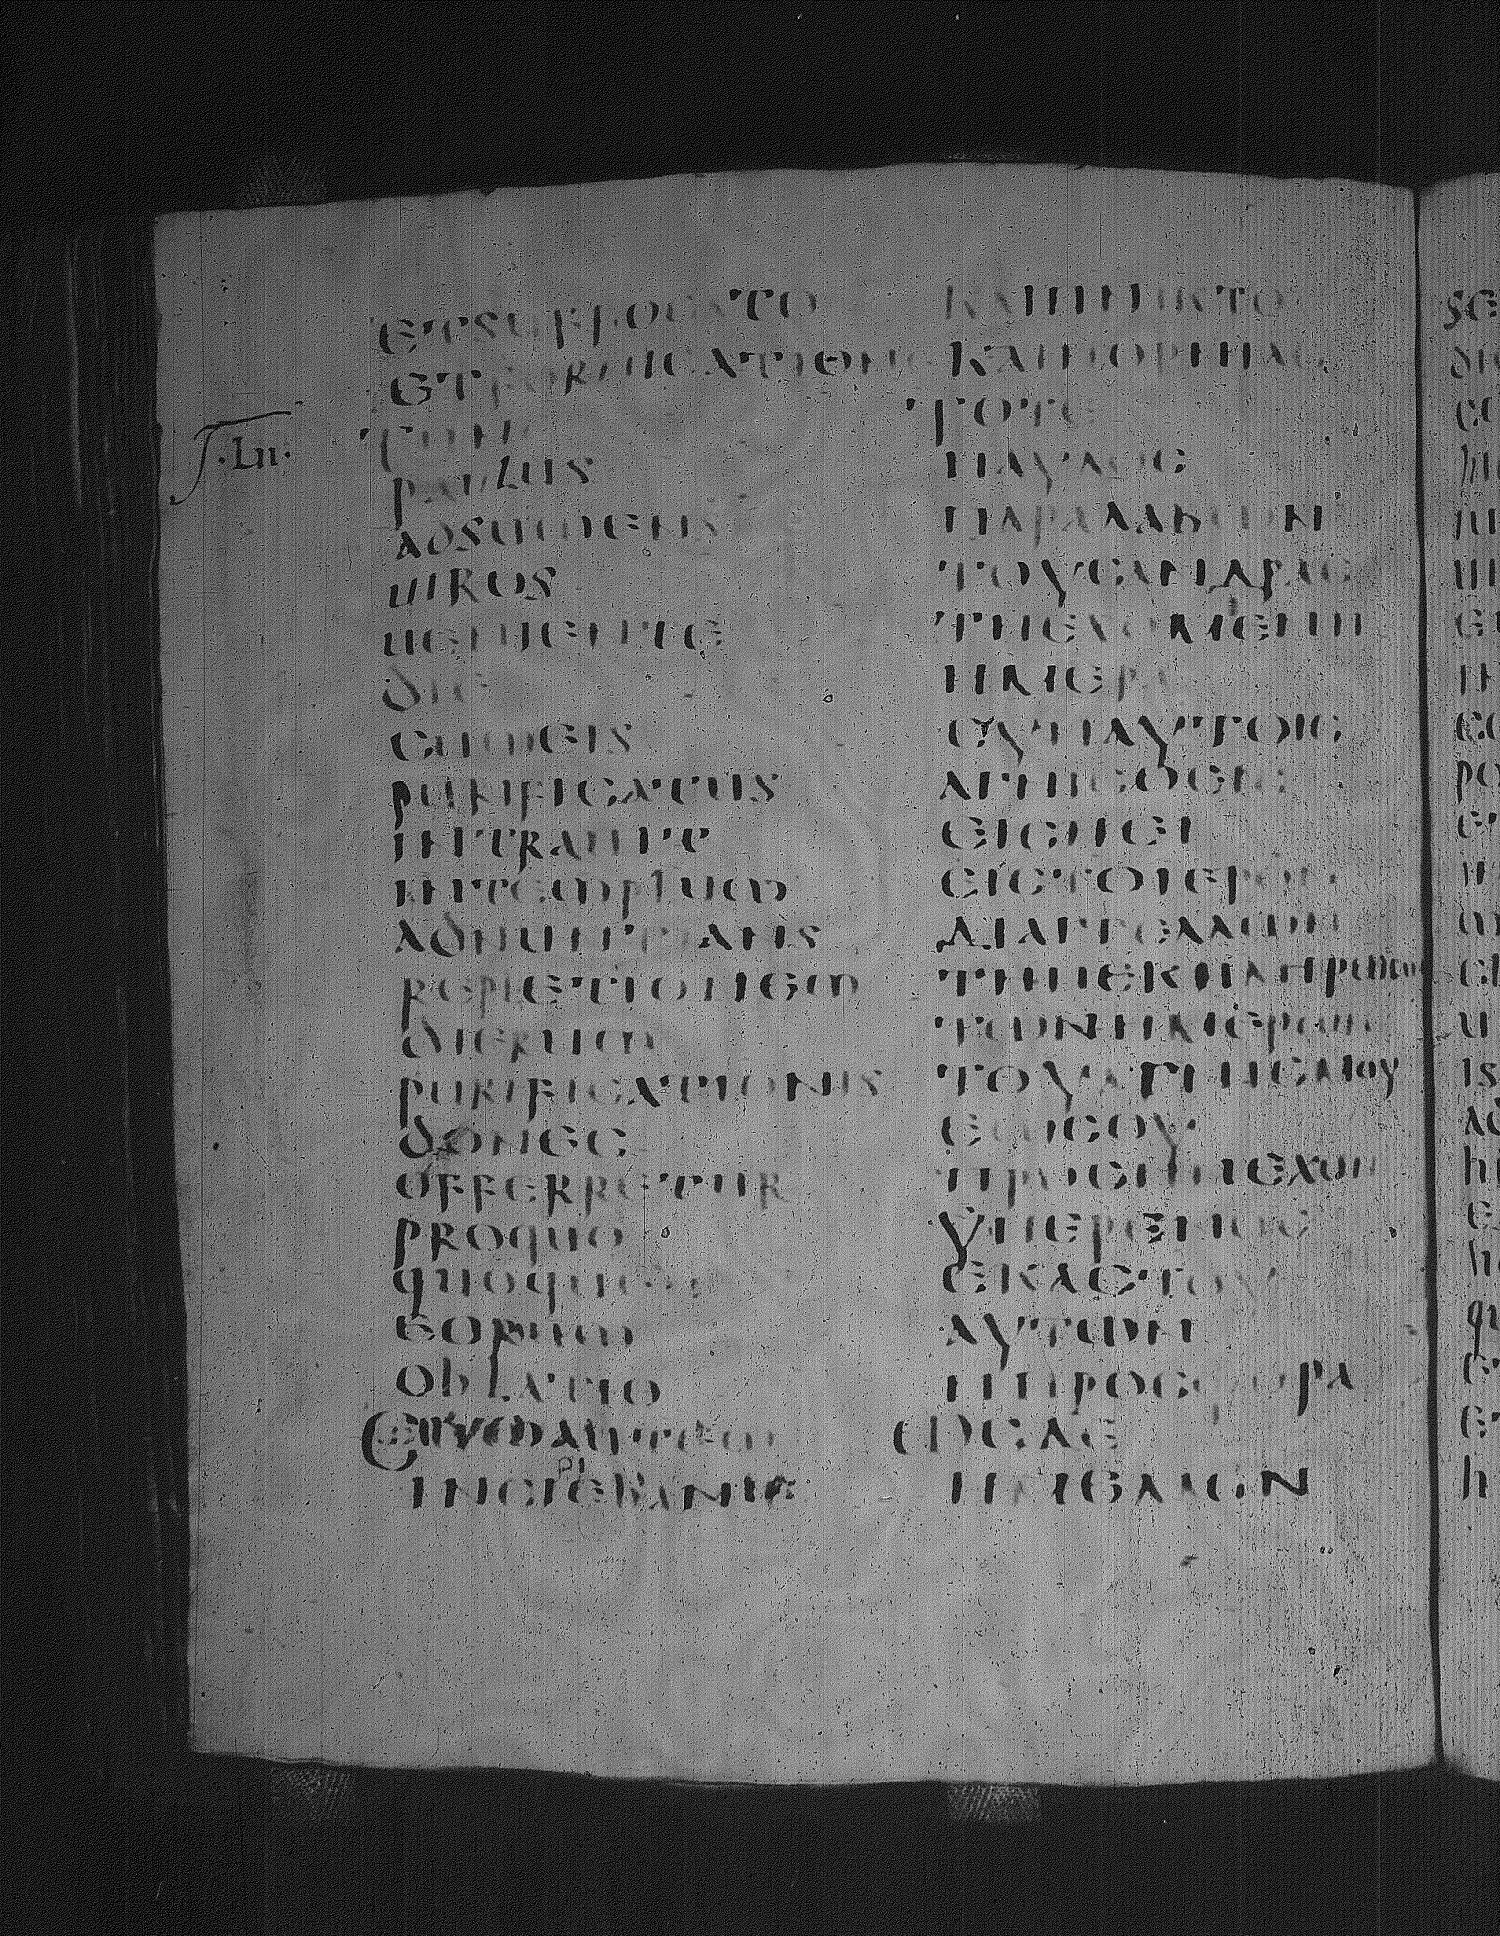 ·LII·
ETSUFFOCATO
ETFORNICATIONE
TUNC
PAULUS
ADSUMENS
UIROS
UENIENTE
DIE
CUMEIS
PURIFICATUS
INTRAUIT
INTEMPLUM
ADNUNTIANS
REPLETIONEM
DIERUM
PURIFICATIONIS
DONEC
OFFERRETUR
PROQUO
EORUM
OBLATIO
ΚΑΙΠΝΙΚΤΟ
ΚΑΙΠΟΡΝΙΑΝ
ΤΟΤΕ
ΠΑΥΛΟϹ
ΠΑΡΑΛΑΒΩΝ
ΤΟΥϹΑΝΔΡΑϹ
ΤΗΕΧΟΜΕΝΗ
ΗΜΕΡΑ
ϹΥΝΑΥΤΟΙϹ
ΑΓΝΙϹΘΕΙϹ
ΕΙϹΗΕΙ
ΕΙϹΤΟΙΕΡΟΝ
ΔΙΑΓΓΕΛΛΩΝ
ΤΗΝΕΚΠΛΗΡΩϹΙΝ
ΤΩΝΗΜΕΡΩΝ
ΤΟΥΑΓΝΙϹΜΟΥ
ΕΩϹΟΥ
ΠΡΟϹΗΝΕΧΘΗ
ΥΠΕΡΕΝΟϹ
ΕΚΑϹΤΟΥ
ΑΥΤΩΝ
ΗΠΡΟϹΦΟΡΑ
ΩϹΔΕ
ΗΜΕΛΛΟΝ